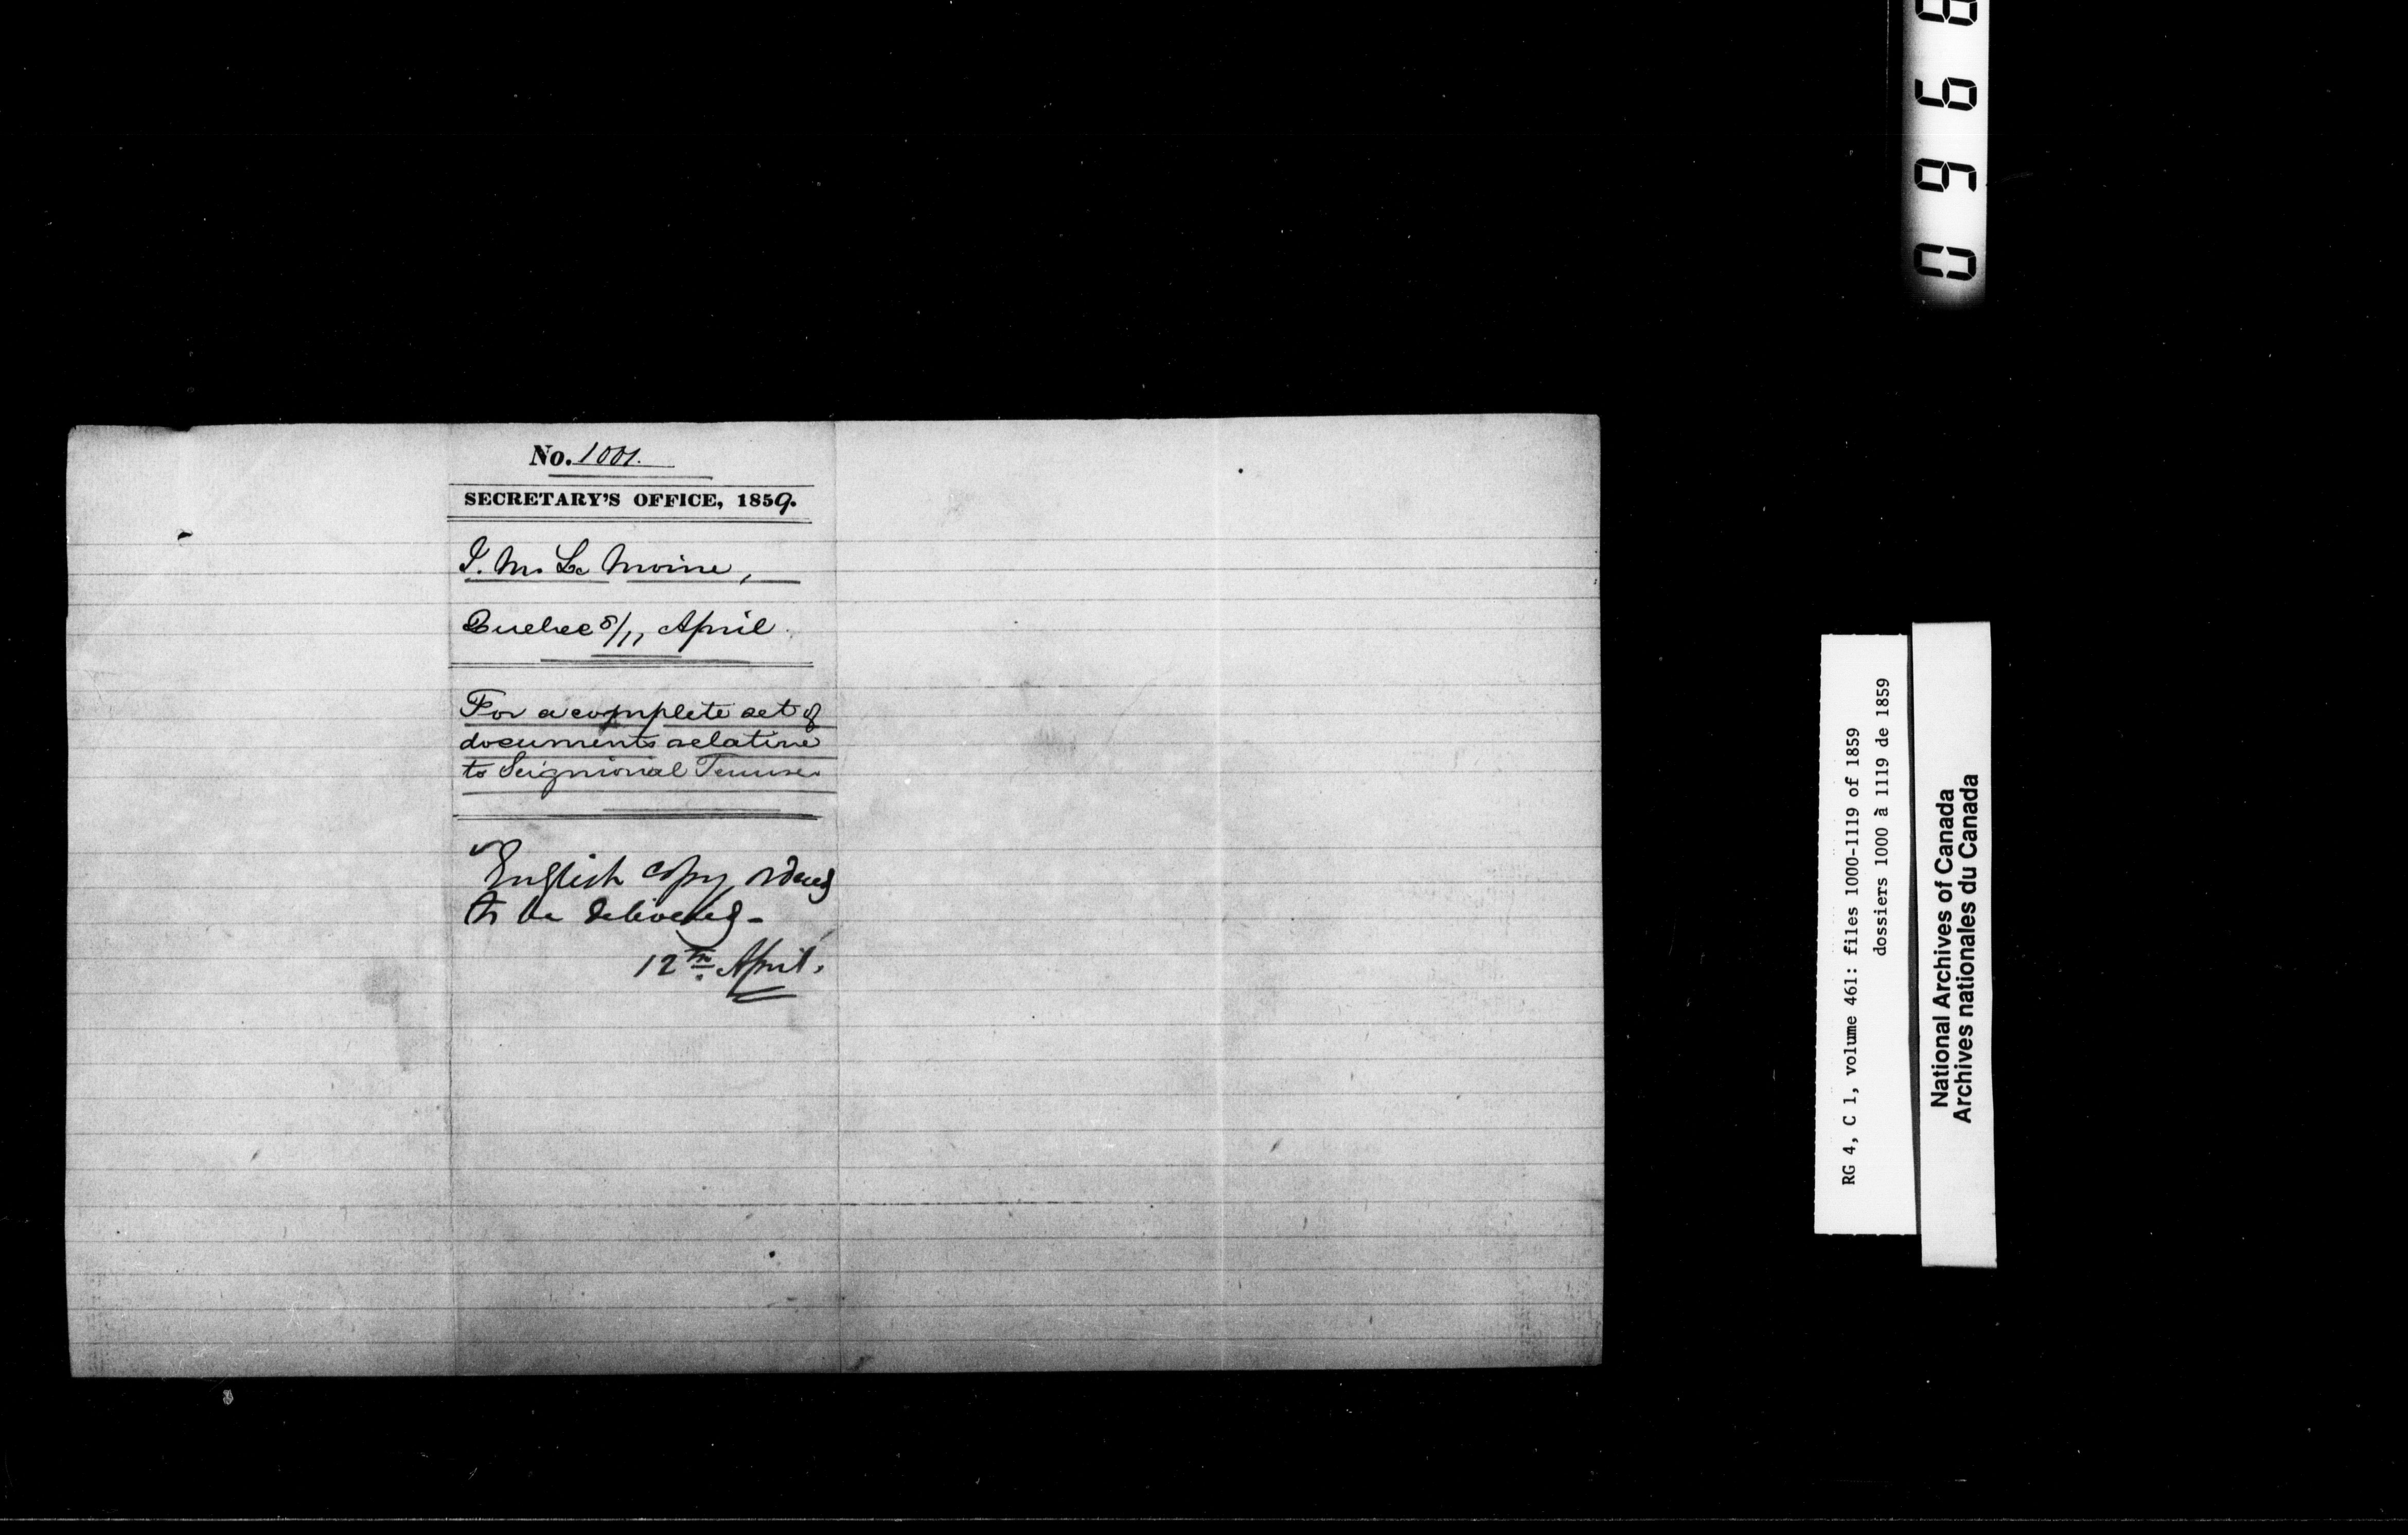 No. 1001.
SECRETARY'S OFFICE, 1859.
J. M. Le Moine,
Quebec 8/11 April
For a complete set of
documents relative
to Seigniorial Tenure
English copy ordered
to be delivered -
12th April.
0968
RG 4, C 1, volume 461: files 1000-1119 of 1859
dossiers 1000 à 1119 de 1859
National Archives of Canada
Archives nationales du Canada